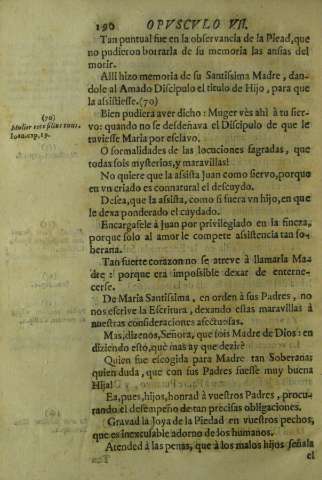 196 OPUSCULO VII.
Tan puntual fue en la observancia de la Piead, que
no pudieron borrarla de su memoria las ansias del
morir.
Alli hizo memoria de su Santissima Madre, dan-
dole al Amado Discipulo el titulo de Hijo, para que
la assistiesse.(70)
(70)
Mulier ecce filius tuus.
Ioan. cap. 19.
Bien pudiera aver dicho: Muger vès ahì à tu sier-
vo: quando no se desdeñava el Discipulo de que le
tuviesse Maria por esclavo.
O formalidades de las locuciones sagradas, que
todas sois mysterios, y maravillas!
No quiere que la assista Juan como siervo, porque
en vn criado es connatural el descuydo.
Desea, que la assista, como si fuera vn hijo, en que
le dexa ponderado el cuydado.
Encargasele à Juan por privilegiado en la fineza,
porque solo al amor le compete assistencia tan so-
berana.
Tan fuerte corazon no se atreve à llamarla Ma-
dre: porque era impossible dexar de enterne-
cerse.
De Maria Santissima, en orden à sus Padres, no
nos escrive la Escritura, dexando estas maravillas à
nuestras consideraciones afectuosas.
Mas, dizenos, Señora, que sois Madre de Dios: en
diziendo esto, què mas ay que dezir?
Quien fue escogida para Madre tan Soberana:
quien duda, que con sus Padres fuesse muy buena
Hija!
Ea, pues, hijos, honrad à vuestros Padres, procu-
rando el desempeño de tan precisas obligaciones.
Gravad la Joya de la Piedad en vuestros pechos,
que es inexcusable adorno de los humanos.
Atended à las penas, que à los malos hijos señala
el